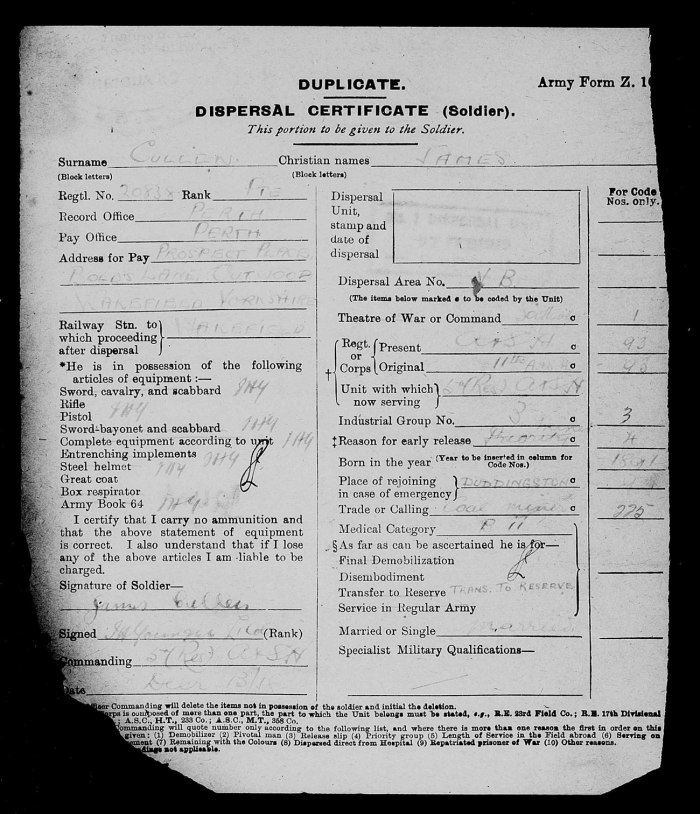 DUPLICATE.
Army Form Z.
DISPERSAL CERTIFICATE (Soldier).
This portion to be given to the Soldier.
Surname CULLEN Christian names JAMES
(Block letters) (Block letters)
Regtl. No. 20838 Rank PTE
Record Office PERTH
Pay Office PERTH
Address for Pay PROSPECT PLACE
LANE, OUTWOOD
WAKEFIELD YORKSHIRE
Railway Stn. to
which proceeding WAKEFIELD
after dispersal
*He is in possession of the following
articles of equipment :—
Sword, cavalry, and scabbard
Rifle
Pistol
Sword-bayonet and scabbard
Complete equipment according to unit
Entrenching implements
Steel helmet
Great coat
Box respirator
Army Book 64
I certify that I carry no ammunition and
that the above statement of equipment
is correct. I also understand that if I lose
any of the above articles I am liable to be
charged.
Signature of Soldier—
James Cullen
Signed (Rank)
Commanding A & S H
Date
Dispersal
Unit,
stamp and
date of
dispersal
For Code
Nos. only.
Dispersal Area No. V B
(The items below marked c to be coded by the Unit)
Theatre of War or Command c 1
† Regt. or Corps
Present A & S H c 93
Original 11th c 93
Unit with which
now serving
Industrial Group No. 3 c 3
‡Reason for early release Priority c 4
Born in the year (Year to be inserted in column for
Code Nos.)
Place of rejoining
in case of emergency DUDDINGSTON c
Trade or Calling Coal miner c 225
Medical Category B II
§As far as can be ascertained he is for—
Final Demobilization
Disembodiment
Transfer to Reserve TRANS. TO RESERVE
Service in Regular Army
Married or Single Married
Specialist Military Qualifications—
Commanding will delete the items not in possession of the soldier and initial the deletion.
is composed of more than one part, the part to which the Unit belongs must be stated, e.g., R.E. 23rd Field Co.; R.E. 17th Divisional
A.S.C., H.T., 233 Co.; A.S.C., M.T., 358 Co.
Commanding will quote number only according to the following list, and where there is more than one reason the first in order on this
given: (1) Demobilizer (2) Pivotal man (3) Release slip (4) Priority group (5) Length of Service in the Field abroad (6) Serving on
(7) Remaining with the Colours (8) Dispersed direct from Hospital (9) Repatriated prisoner of War (10) Other reasons.
not applicable.